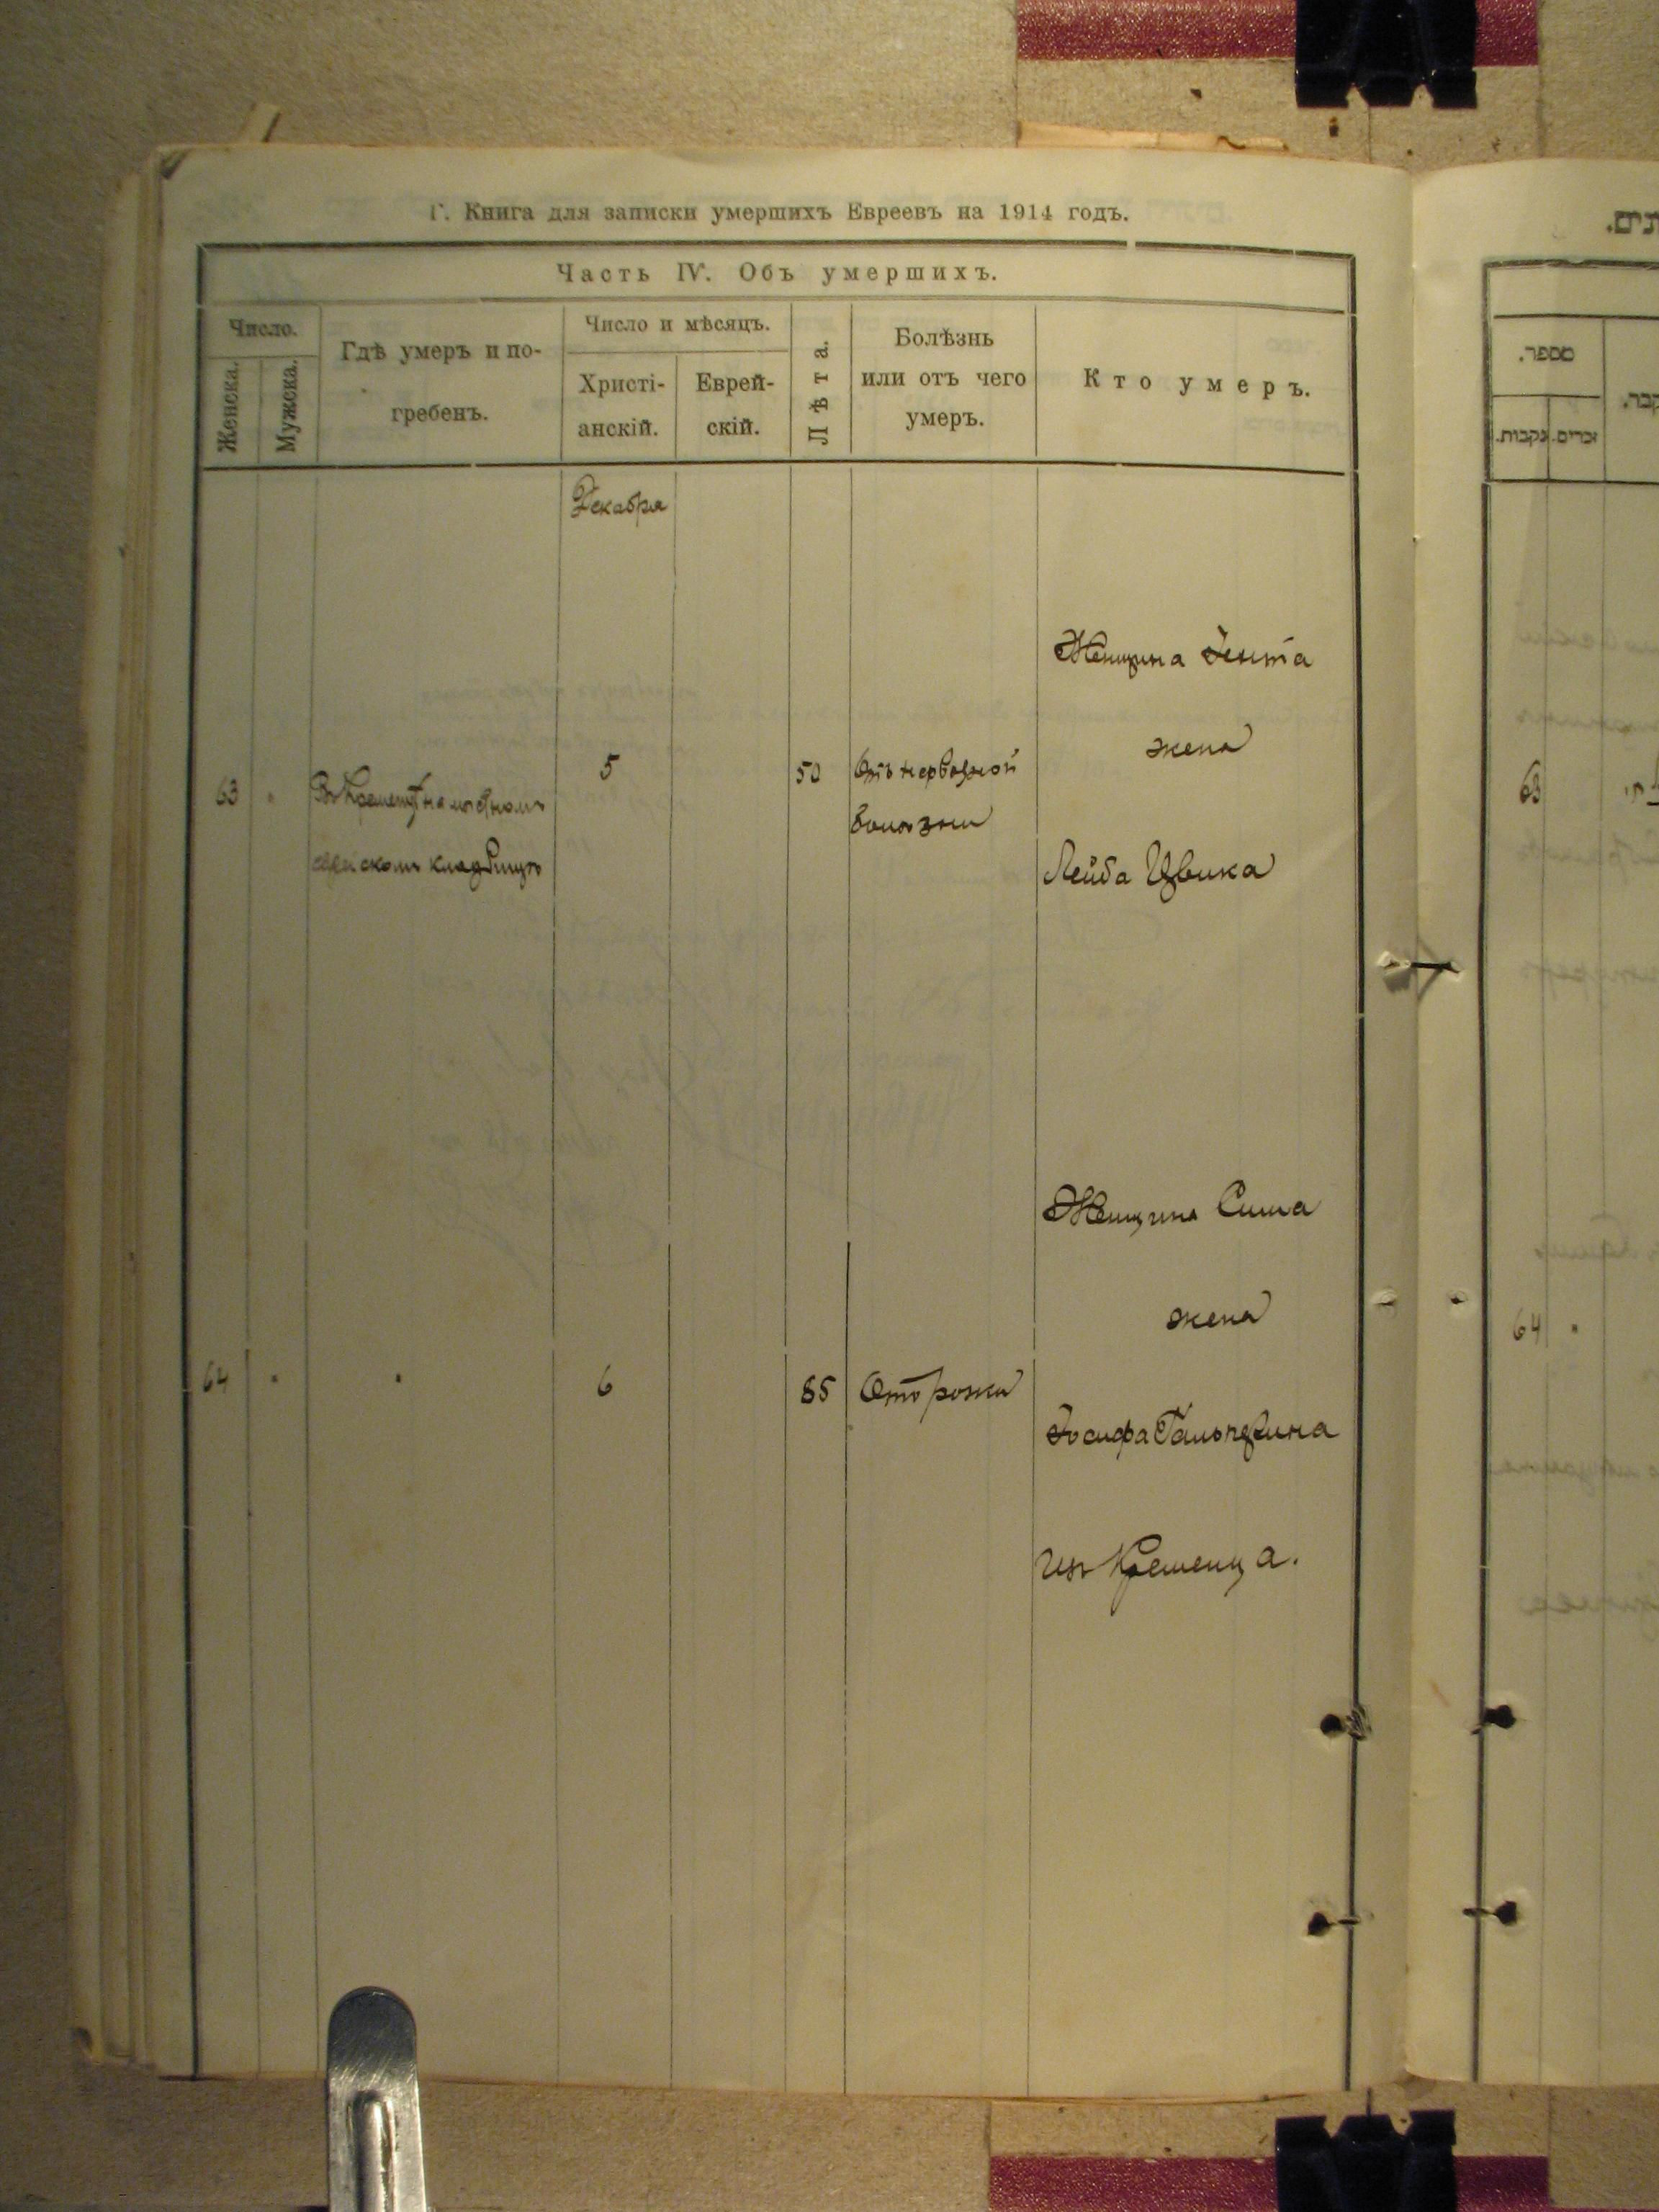 Г. Книга для записки умершихъ Евреевъ на 1914 годъ.
Часть IV. Объ умершихъ.
Число.
Женска.
Мужска.
Гдѣ умеръ и по-
гребенъ.
Число и мѣсяцъ.
Христі-
анскій.
Еврей-
скій.
Лѣта.
Болѣзнь
или отъ чего
умеръ.
Кто умеръ.
Декабря
Женщина Іента
жена
Лейба Цвика
63
Въ Кременцѣ на мѣстномъ
еврейскомъ кладбищѣ
5
50
Отъ нервной
болѣзни
Женщина Сима
жена
Іосифа Гальперина
изъ Кременца.
64
6
85
Отъ рожи
מספר.
נקבות.
זכרים.
63
64